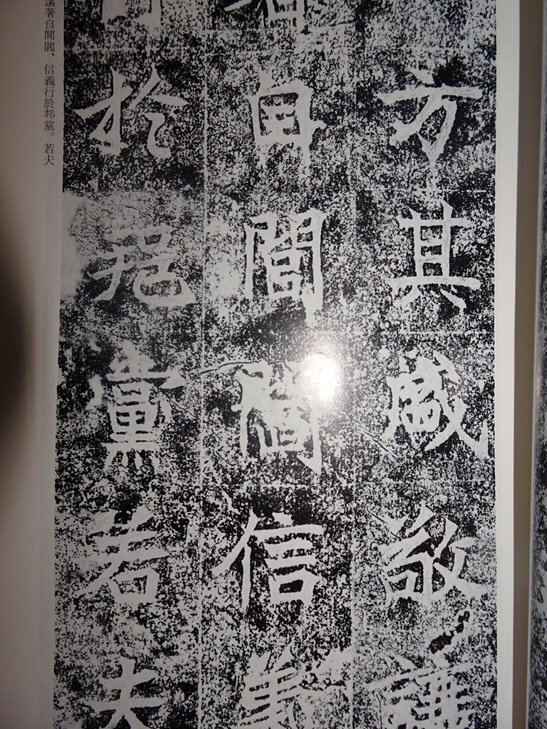 方其盛敬讓
著自閭閻信義
行於邦黨若夫
讓著自閭閻、信義行於邦黨。若夫